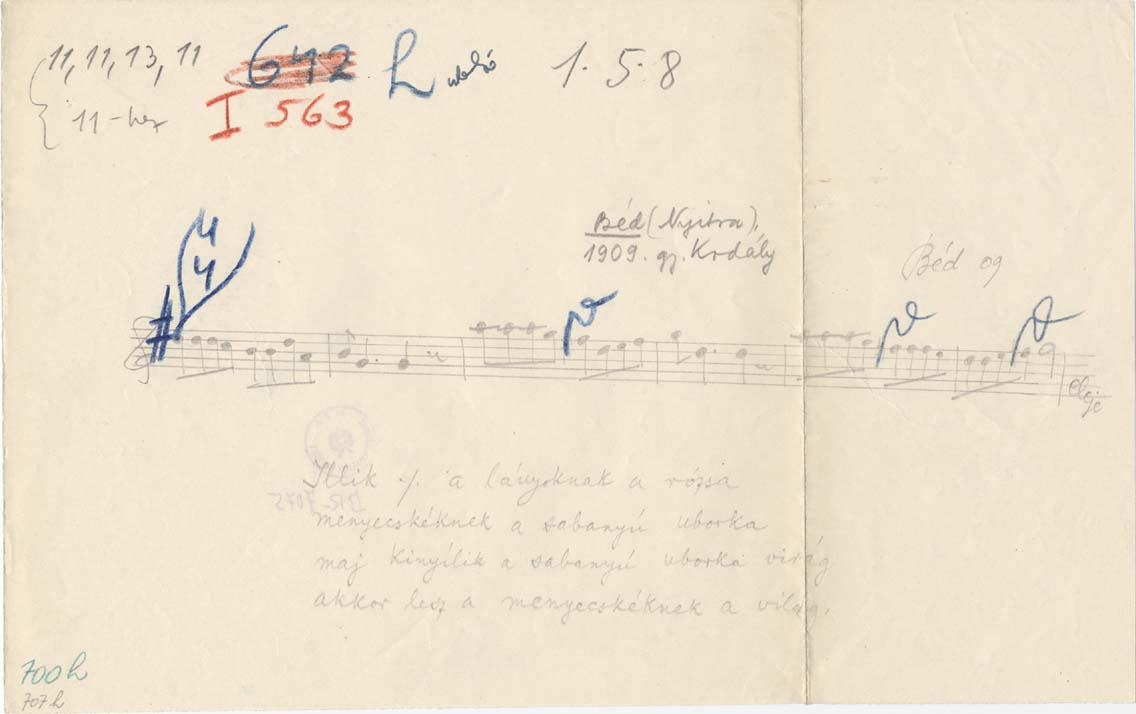 11, 11, 13, 11 642 h utolsó 1. 5. 8
11-hez I 563
Béd (Nyitra),
1909. gy. Kodály
Béd 09
4
4
eleje
Illik ./. a lányoknak a rózsa
menyecskéknek a sabanyú uborka
maj kinyílik a sabanyú uborka virág
akkor lesz a menyecskéknek a világ.
700 h
707 h